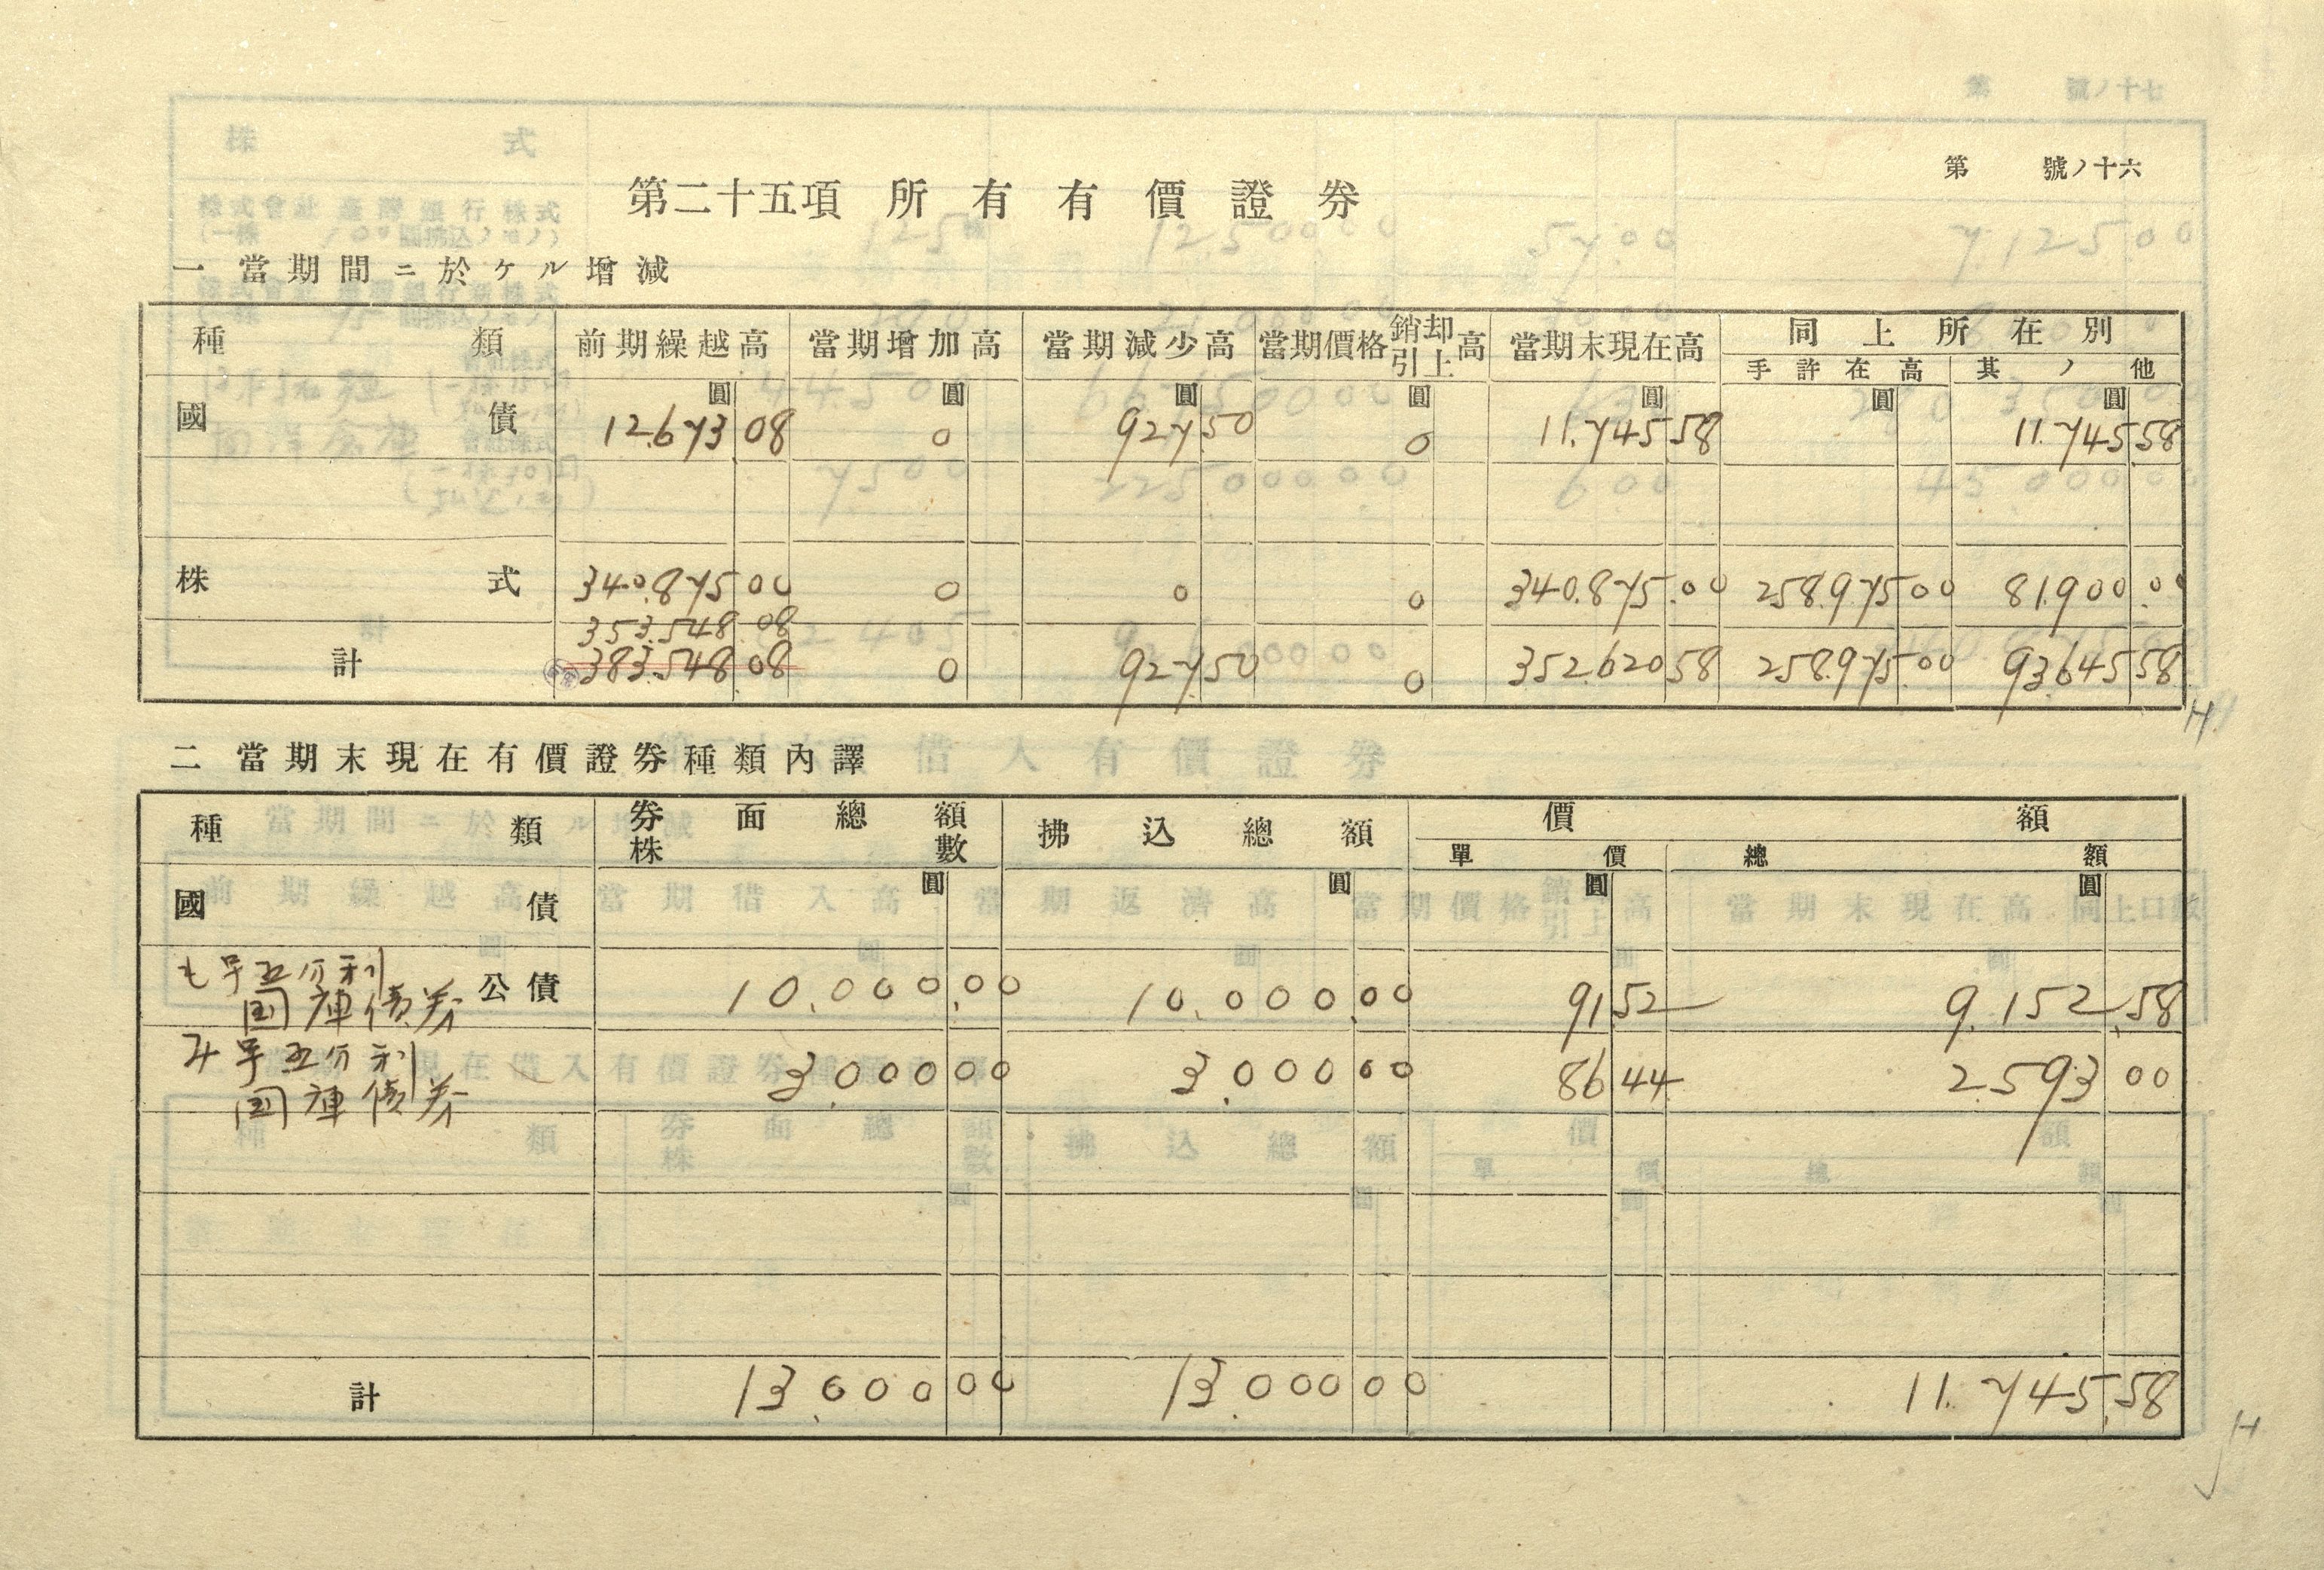 第　號ノ十六
第二十五項 所有有價證券
一 當期間ニ於ケル增減
種類 前期繰越高 當期增加高 當期減少高 當期價格銷却引上高 當期末現在高 同上所在別
手許在高 其ノ他
圓 圓 圓 圓 圓 圓 圓
國債 12.673 08 0 927 50 0 11.745 58 11.745 58
株式 340.875 00 0 0 0 340.875.00 258.975 00 81.900.00
353.548.08
計 383.548 08 0 927 50 0 352.620 58 258.975.00 93.645 58
二 當期末現在有價證券種類內譯
種類 券面總額 拂込總額 價額
株數 單價 總額
圓 圓 圓 圓
國債
も号五分利
国庫債券 公債 10.000.00 10.000.00 91 52 9.152.58
み号五分利
国庫債券 3.000 00 3.000 00 86 44 2.593 00
計 13.000 00 13.000 00 11.745.58